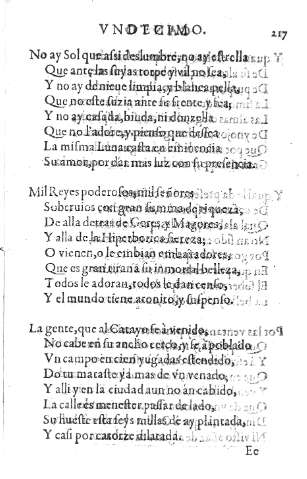 VNDECIMO. 217
No ay Sol que assi deslumbre, no ay estrella
Que ante las suyas torpe y vil no sea,
Y no ay de nieue limpia, y blanca pella,
Que no estè suzia ante su frente, y fea;
Y no ay casada, biuda, ni donzella
Que no l'adore, y pienso que dessea
La misma Luna casta en eminencia
Su amor, por dar mas luz con su presencia.
Mil Reyes poderosos, mil señores
Soberuios con gran summa de riqueza,
De alla detras de Gores, y Magores,
Y alla de la Hiperborica fiereza;
O vienen, o le embian embaxadores,
Que es gran tirana su inmortal belleza,
Todos le adoran, todos le dan censo,
Y el mundo tiene atonito, y suspenso.
La gente, que al Catayo se à venido,
No cabe en su ancho cerco, y se à poblado
Vn campo en cien yugadas estendido,
Do tu mataste ya mas de vn venado,
Y alli y en la ciudad aun no an cabido,
La calle es menester passar de lado,
Su hueste esta seys millas de ay plantada,
Y casi por catorze dilatada.
Ee